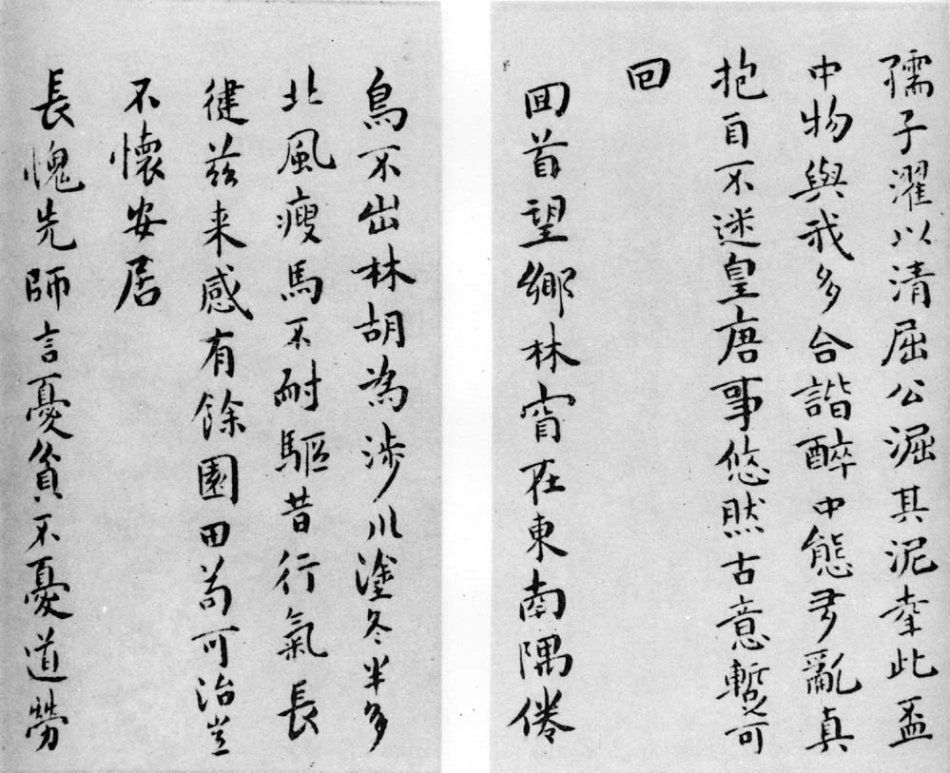 孺子濯以清屈公淈其泥幸此盃
中物與我多合諧醉中態多亂真
抱自不迷皇唐事悠然古意暫可
回
回首望鄉林宵在東南隅倦
鳥不出林胡為涉川塗冬半多
北風瘦馬不耐驅昔行氣長
徤茲来感有餘園田苟可治豈
不懷安居
長愧先師言憂貧不憂道勞